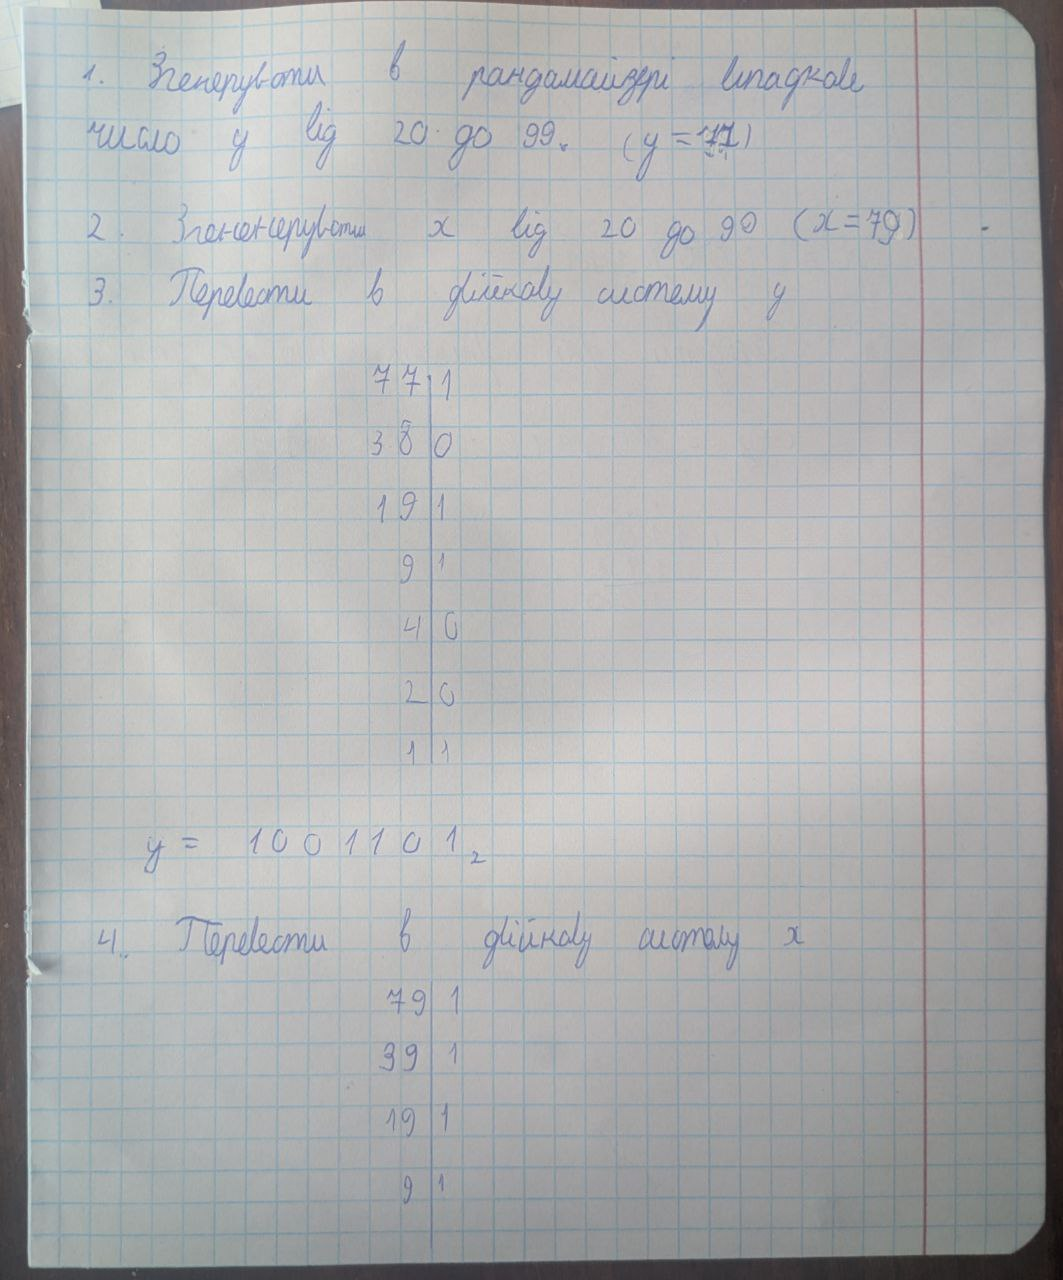 1. Згенерувати в рандамайзері випадкове
число y від 20 до 99. (y = 77)
2. Згененерувати x від 20 до 90 (x = 79)
3. Перевести в двійкову систему y
77 | 1
38 | 0
19 | 1
9 | 1
4 | 0
2 | 0
1 | 1
y = 1001101₂
4. Перевести в двійкову систему x
79 | 1
39 | 1
19 | 1
9 | 1